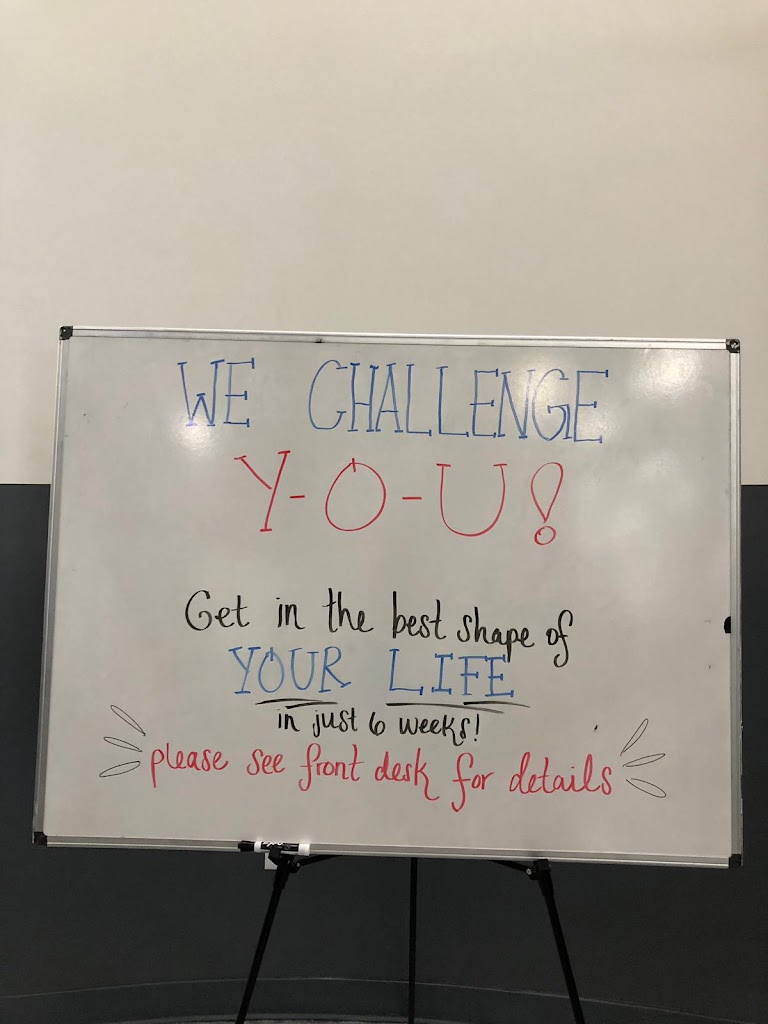 WE CHALLENGE
Y-O-U!
Get in the best shape of
YOUR LIFE
in just 6 weeks!
please see front desk for details